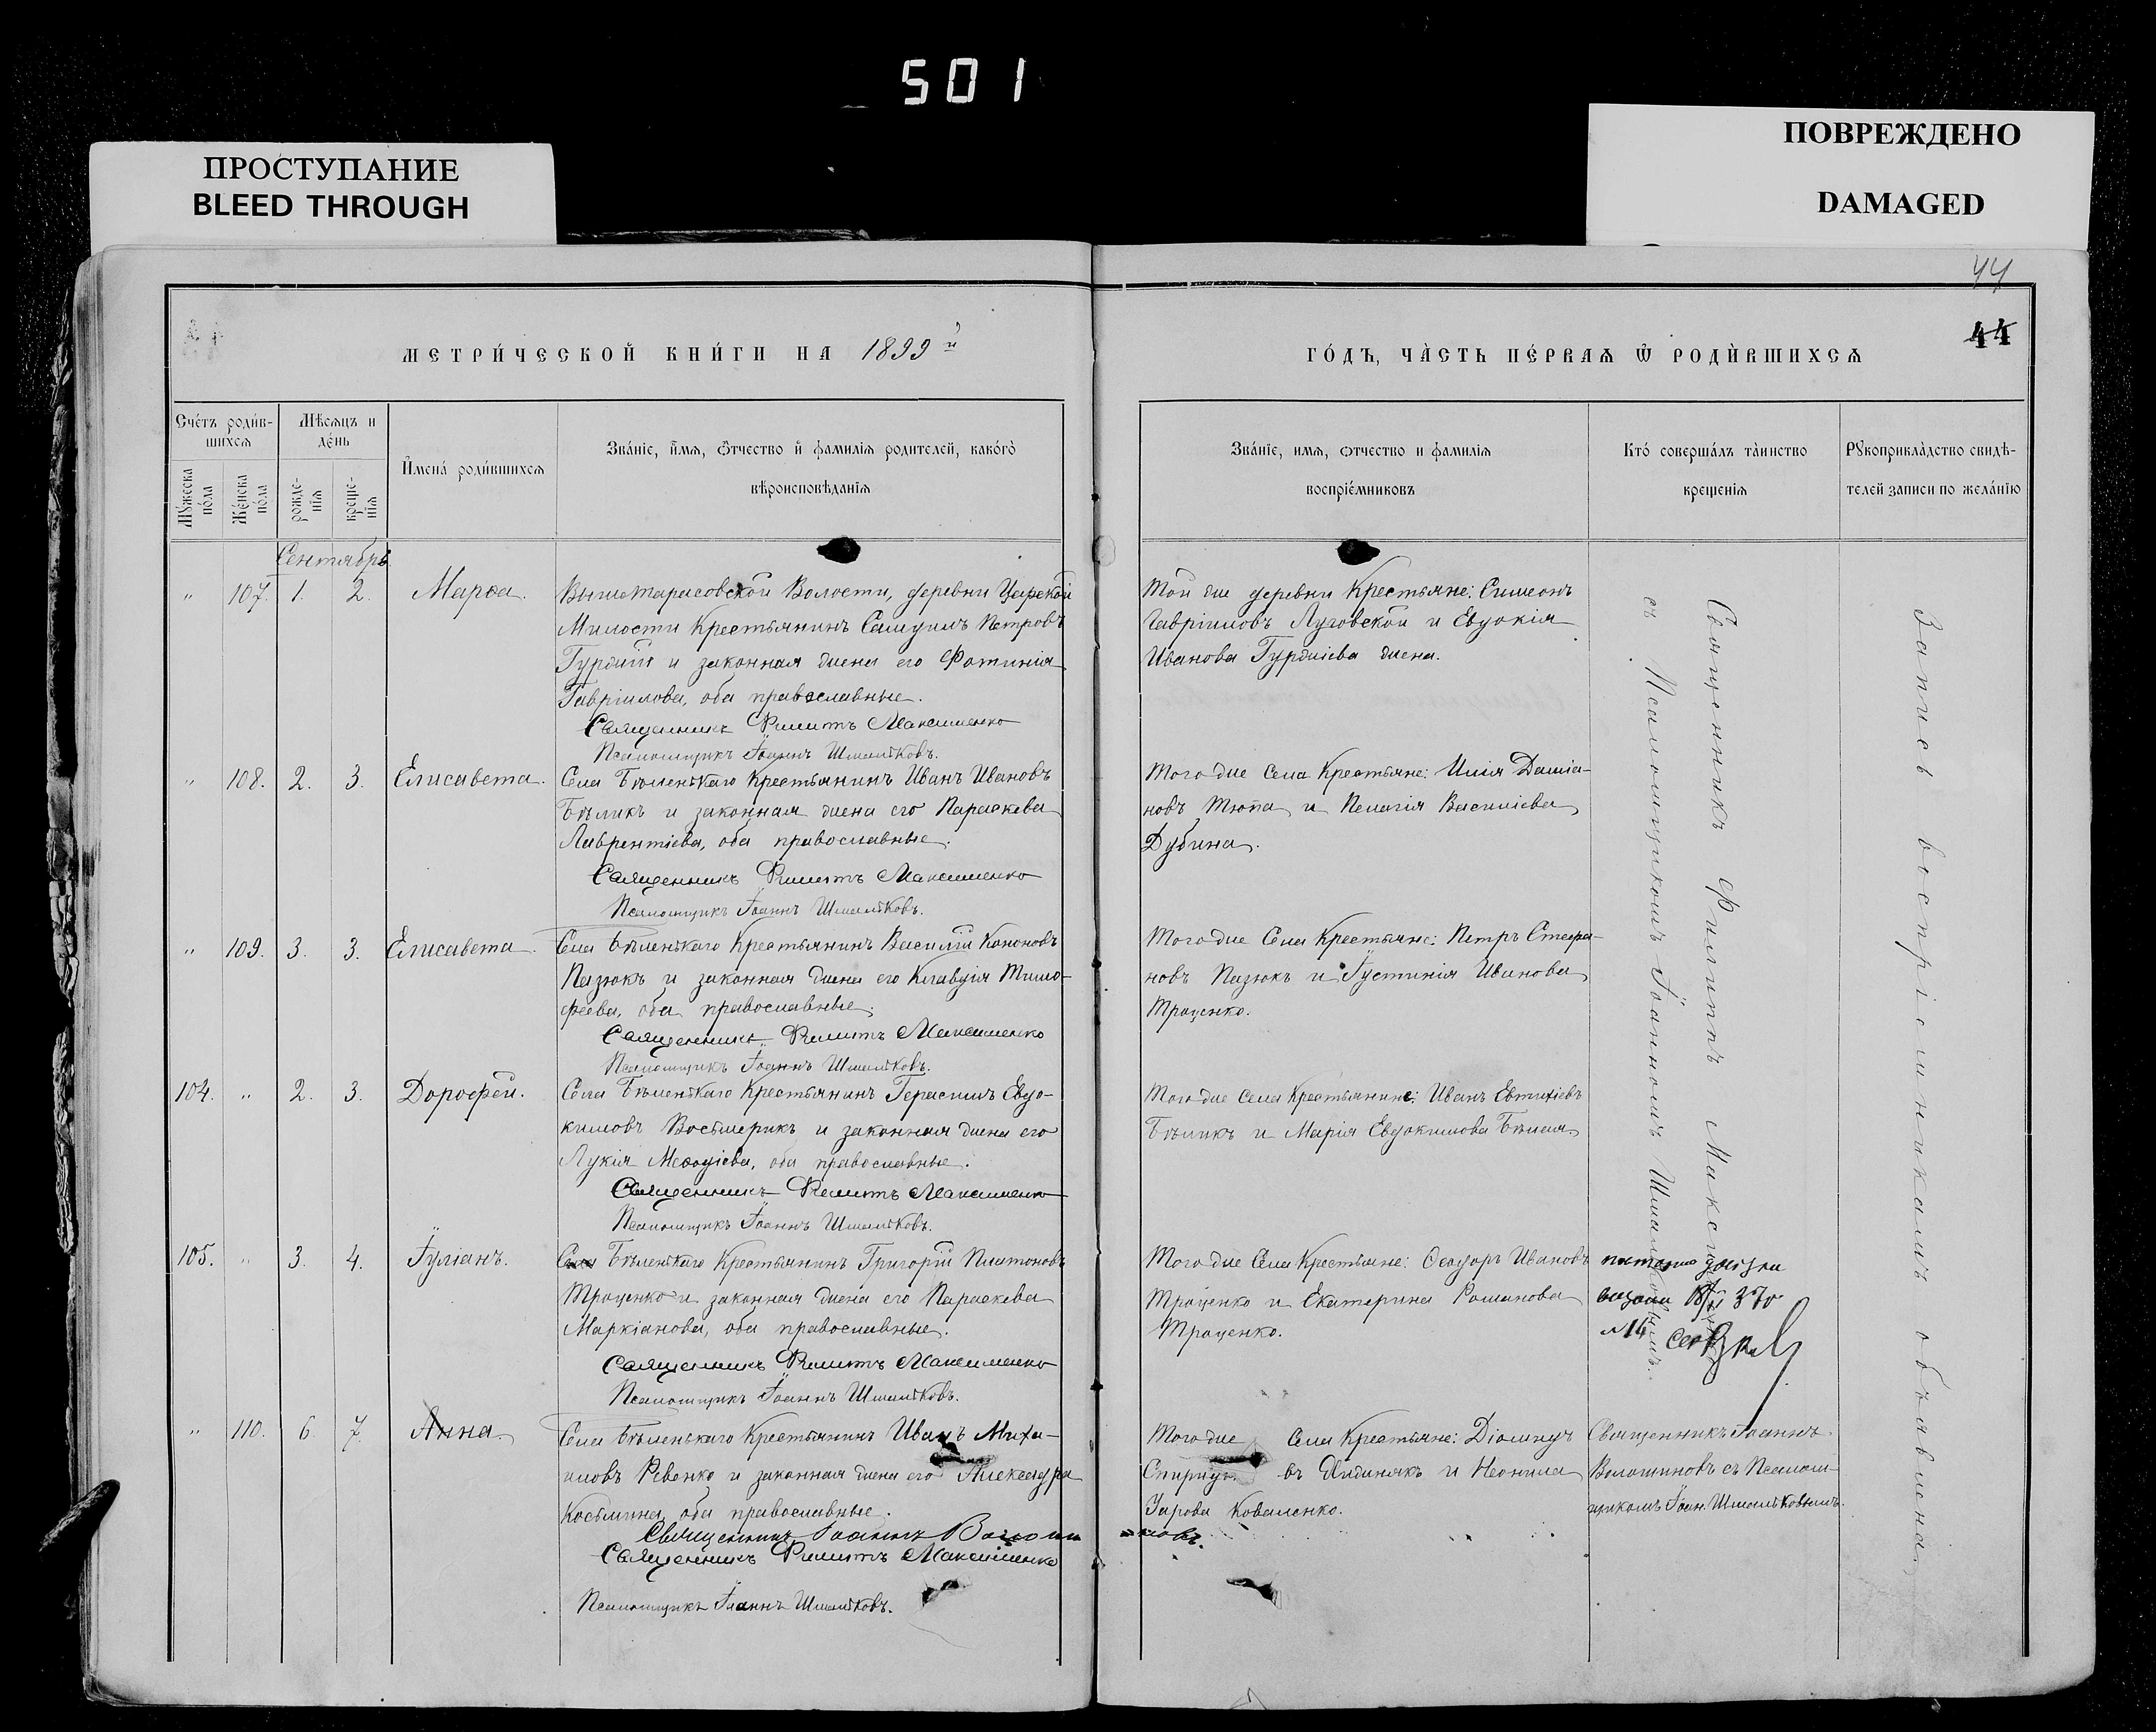 501
ПРОСТУПАНИЕ
BLEED THROUGH
ПОВРЕЖДЕНО
DAMAGED
44
44
МЕТРИ́ЧЕСКОЙ КНИ́ГИ НА 1899 й
ГО́ДЪ, ЧА̀СТЬ ПЕ́РВАѦ Ѡ҃ РОДЍВШИХСѦ
Сче́тъ роди́в-
шихсѧ
Мѣ́сѧцъ и
де́нь
Мꙋ́жеска
по́ла
Же́нска
по́ла
рожде-
нїѧ
креще-
нїѧ
И҆мена́ роди́вшихсѧ
Зва́нїе, и҆́мѧ, ѻ҆́тчество и҆ фами́лїѧ роди́телей, како́гѡ
вѣроисповѣ́данїѧ
Зва́нїе, имѧ, ѻтчество и фами́лїѧ
воспрїе́мниковъ
Кто́ соверша́лъ та̀инство
креще́нїѧ
Рꙋкоприкла́дство свидѣ́-
телей записи по жела́нїю
Сентябрь
" 107. 1. 2. Марѳа.
Вышетарасовской Волости, деревни Царской
Милости Крестьянинъ Самуилъ Петровъ
Гурдий и законная жена его Фотинія
Гавріилова, оба православные.
Священникъ Филиппъ Максименко
Псаломщикъ Іоаннъ Шмат­ковъ.
Той же деревни Крестьяне: Симеонъ
Гавріиловъ Луговской и Евдокія
Иванова Гурдіева жена.
" 108. 2. 3. Елисавета.
Села Бѣленькаго Крестьянинъ Иванъ Ивановъ
Бѣликъ и законная жена его Параскева
Лаврентіева, оба православные.
Священникъ Филиппъ Максименко
Псаломщикъ Іоаннъ
Того же села Крестьяне: Илія Даміа-
новъ Тюпа и Пелагія Василіева
Дубина.
" 109. 3. 3. Елисавета.
Села Бѣленькаго Крестьянинъ Василій Кононовъ
Пазюкъ и законная жена его Клавдія Тимо-
феева, оба православные.
Священникъ Филиппъ Максименко
Псаломщикъ Іоаннъ
Того же Села Крестьяне: Петръ Стефа-
новъ Пазюкъ и Іустинія Иванова
Троценко.
104. " 2. 3. Дорофей.
Села Бѣленькаго Крестьянинъ Герасимъ Евдо-
кимовъ Восьмерикъ и законная жена его
Лукія Меѳодіева, оба православные.
Священникъ Филиппъ Максименко
Псаломщикъ Іоаннъ
Того же села Крестьянине: Иванъ Евтихіевъ
Бѣликъ и Марія Евдокимова Бѣлая.
105. " 3. 4. Іуліанъ.
Села Бѣленькаго Крестьянинъ Григорій Платоновъ
Троценко и законная жена его Параскева
Маркіанова, оба православные.
Священникъ Филиппъ Максименко
Псаломщикъ Іоаннъ
Того же Села Крестьяне: Ѳеодоръ Ивановъ
Троценко и Екатерина Романова
Троценко.
№ 14
" 110. 6. 7. Анна.
Села Бѣленькаго Крестьянинъ Иванъ Миха-
иловъ Ревенко и законная жена его Александра
Косьмина, оба православные.
Священникъ Іоаннъ Волоши новъ.
Священникъ Филиппъ Максименко
Псаломщикъ Іоаннъ
Того же Села Крестьяне: Діомидъ
въ и Неонила
Уарова Коваленко.
Священникъ Іоаннъ
Волошиновъ съ Псалом-
щикомъ Іоан.
Священникъ Филиппъ Максименко
съ Псаломщикомъ Іоанномъ
Запись воспріемникамъ объявлена.